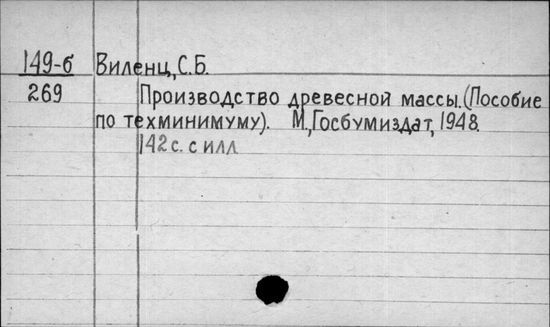 149-б Виленц, С.Б.
269 Производство древесной массы. (Пособие
по техминимуму). М., Госбумиздат, 1948.
142 с. с илл